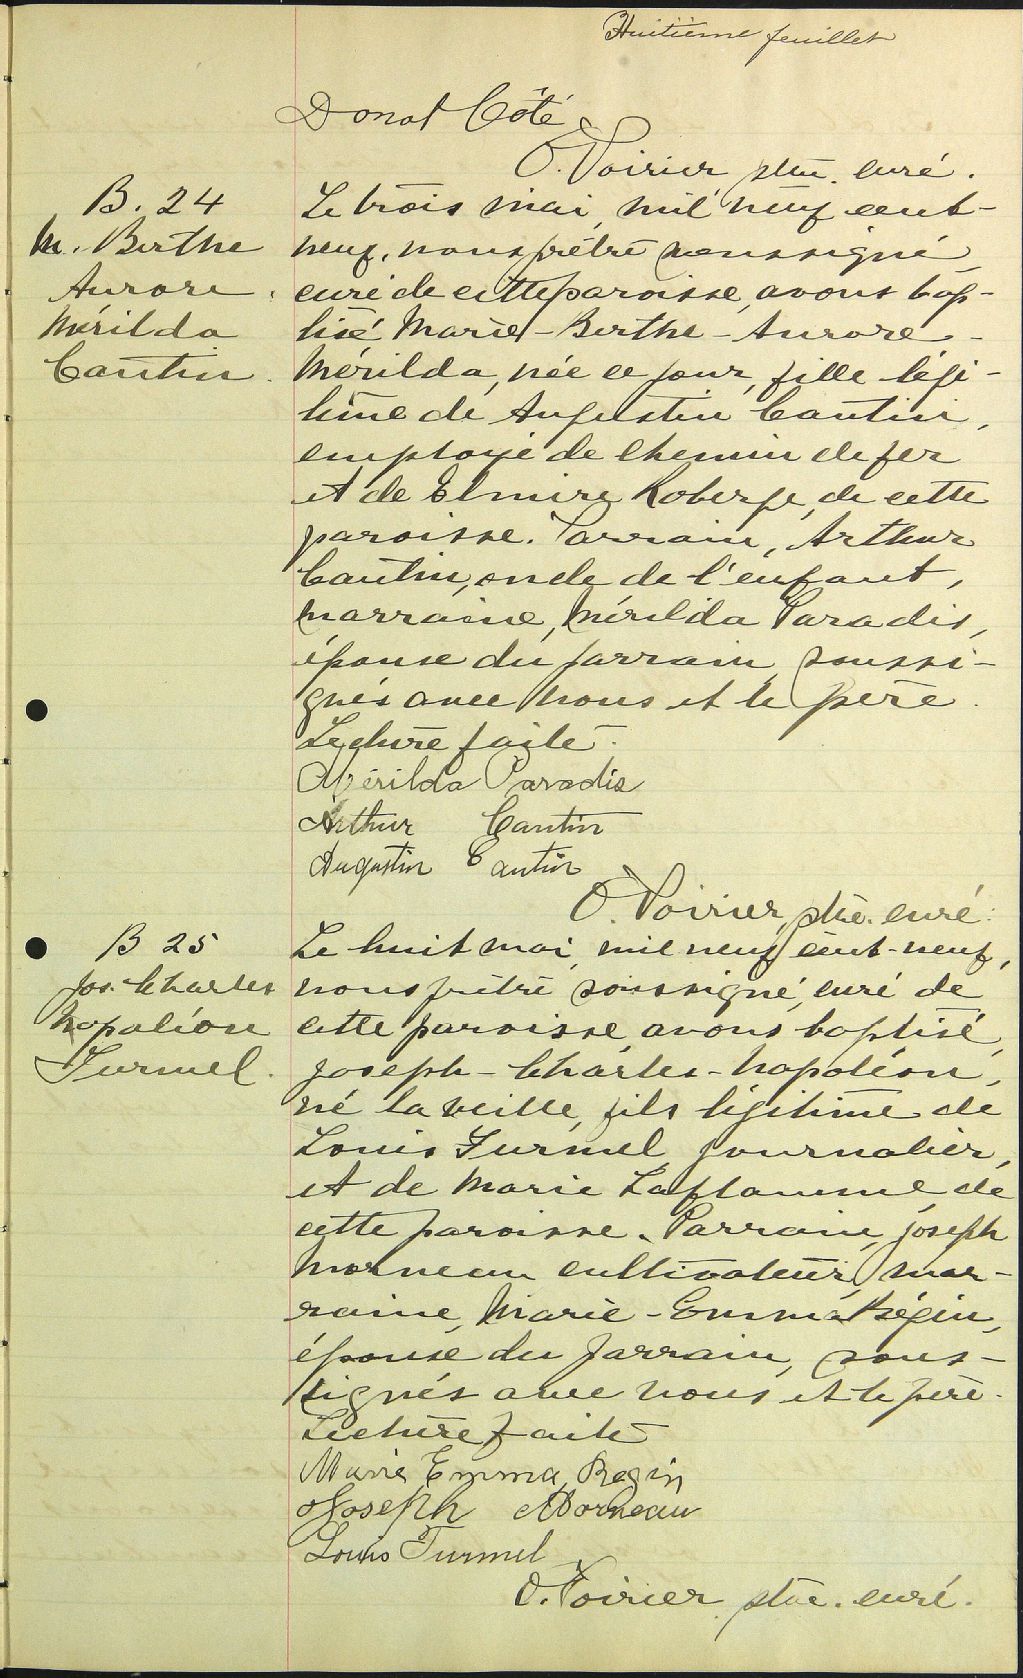 Huitième feuillet
Donat Côté
O. Poirier ptre. curé.
B. 24
M. Berthe
Aurore
Mérilda
Cantin.
Le trois mai, mil neuf cent-
neuf, nous prêtre soussigné
curé de cette paroisse, avons bap-
tisé Marie-Berthe-Aurore-
Mérilda, née ce jour, fille légi-
time de Augustin Cantin,
employé de chemin de fer
et de Elmire Roberge, de cette
paroisse. Parrain, Arthur
Cantin, oncle de l'enfant,
marraine, Mérilda Paradis,
épouse du parrain, soussi-
gnés avec nous et le père.
Lecture faite.
Mérilda Paradis
Arthur Cantin
Augustin Cantin
O. Poirier, ptre. curé.
B 25
Jos. Charles
Napoléon
Turmel.
Le huit mai, mil neuf cent-neuf,
nous prêtre soussigné, curé de
cette paroisse, avons baptisé,
Joseph-Charles-Napoléon,
né la veille, fils légitime de
Louis Turmel, journalier,
et de Marie Laflamme, de
cette paroisse. Parrain, Joseph
Morneau cultivateur, mar-
raine, Marie-Emma Bégin,
épouse du parrain, sous-
signés avec nous et le père.
Lecture faite
Marie Emma Begin
Joseph Morneau
Louis Turmel
O. Poirier ptre. curé.